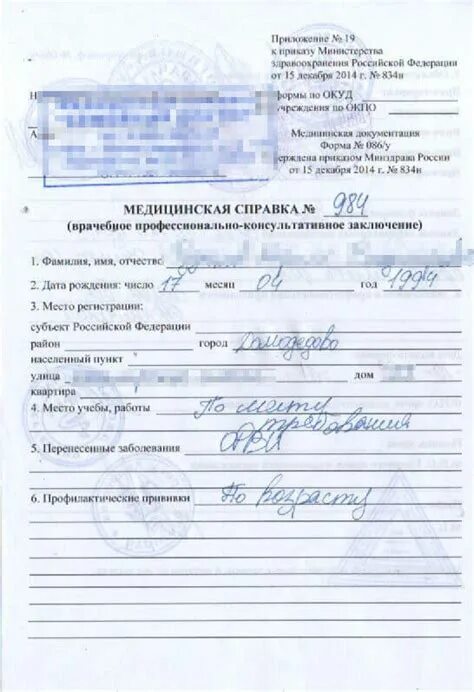 Приложение № 19
к приказу Министерства
здравоохранения Российской Федерации
от 15 декабря 2014 г. № 834н
формы по ОКУД
учреждения по ОКПО
Медицинская документация
Форма № 086/у
ерждена приказом Минздрава России
от 15 декабря 2014 г. № 834н
МЕДИЦИНСКАЯ СПРАВКА № 984
(врачебное профессионально-консультативное заключение)
1. Фамилия, имя, отчество
2. Дата рождения: число 17 месяц 04 год 1994
3. Место регистрации:
субъект Российской Федерации
район город Домодедово
населенный пункт
улица дом
квартира
4. Место учебы, работы По месту
требования
5. Перенесенные заболевания ОРВИ
6. Профилактические прививки По возрасту